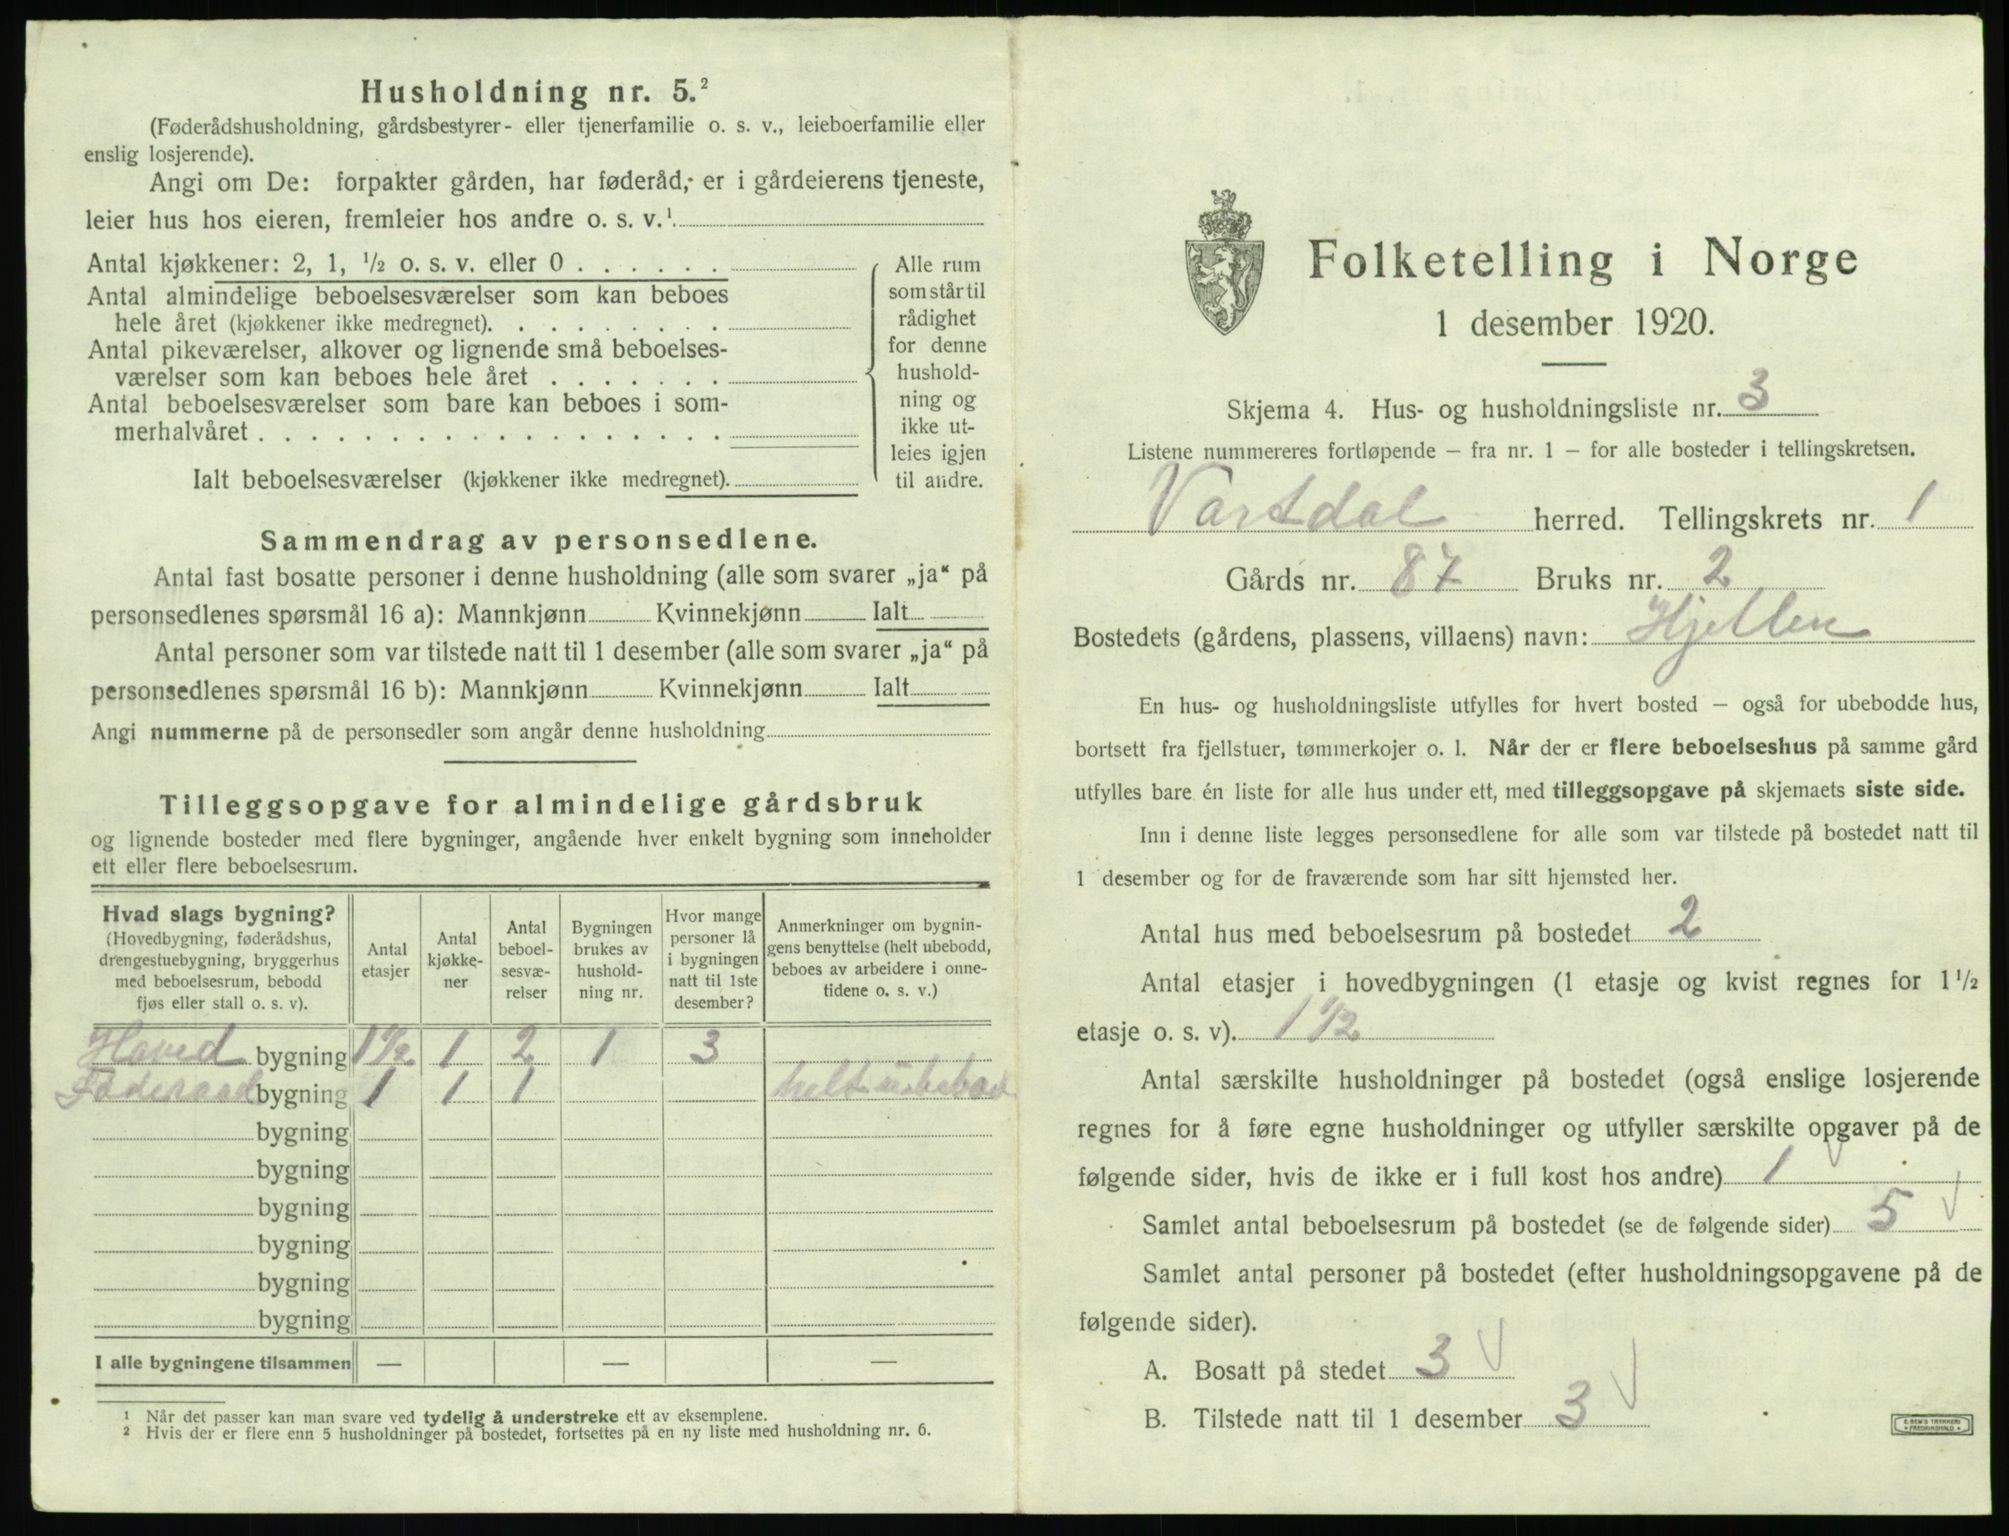 Husholdning nr. 5.²
(Føderådshusholdning, gårdsbestyrer- eller tjenerfamilie o. s. v., leieboerfamilie eller
enslig losjerende).
Angi om De: forpakter gården, har føderåd, er i gårdeierens tjeneste,
leier hus hos eieren, fremleier hos andre o. s. v.¹
Antal kjøkkener: 2, 1, ½ o. s. v. eller 0
Antal almindelige beboelsesværelser som kan beboes
hele året (kjøkkener ikke medregnet).
Antal pikeværelser, alkover og lignende små beboelses-
værelser som kan beboes hele året
Antal beboelsesværelser som bare kan beboes i som-
merhalvåret
Ialt beboelsesværelser (kjøkkener ikke medregnet).
Alle rum
som står til
rådighet
for denne
hushold-
ning og
ikke ut-
leies igjen
til andre.
Sammendrag av personsedlene.
Antal fast bosatte personer i denne husholdning (alle som svarer „ja“ på
personsedlenes spørsmål 16 a): Mannkjønn Kvinnekjønn Ialt
Antal personer som var tilstede natt til 1 desember (alle som svarer „ja“ på
personsedlenes spørsmål 16 b): Mannkjønn Kvinnekjønn Ialt
Angi nummerne på de personsedler som angår denne husholdning
Tilleggsopgave for almindelige gårdsbruk
og lignende bosteder med flere bygninger, angående hver enkelt bygning som inneholder
ett eller flere beboelsesrum.
Hvad slags bygning?
(Hovedbygning, føderådshus,
drengestuebygning, bryggerhus
med beboelsesrum, bebodd
fjøs eller stall o. s. v).
Antal
etasjer
Antal
kjøkke-
ner
Antal
beboel-
sesvæ-
relser
Bygningen
brukes av
hushold-
ning nr.
Hvor mange
personer lå
i bygningen
natt til 1ste
desember?
Anmerkninger om bygnin-
gens benyttelse (helt ubebodd,
beboes av arbeidere i onne-
tidene o. s. v.)
Hoved bygning 1½ 1 2 1 3
Føderaad bygning 1 1 1 helt ubebod
bygning
bygning
bygning
bygning
bygning
bygning
I alle bygningene tilsammen — — —
¹ Når det passer kan man svare ved tydelig å understreke ett av eksemplene.
² Hvis der er flere enn 5 husholdninger på bostedet, fortsettes på en ny liste med husholdning nr. 6.
Folketelling i Norge
1 desember 1920.
Skjema 4. Hus- og husholdningsliste nr. 3
Listene nummereres fortløpende – fra nr. 1 – for alle bosteder i tellingskretsen.
Vartdal herred. Tellingskrets nr. 1
Gårds nr. 87 Bruks nr. 2
Bostedets (gårdens, plassens, villaens) navn: Hjellen
En hus- og husholdningsliste utfylles for hvert bosted – også for ubebodde hus,
bortsett fra fjellstuer, tømmerkojer o. l. Når der er flere beboelseshus på samme gård
utfylles bare én liste for alle hus under ett, med tilleggsopgave på skjemaets siste side.
Inn i denne liste legges personsedlene for alle som var tilstede på bostedet natt til
1 desember og for de fraværende som har sitt hjemsted her.
Antal hus med beboelsesrum på bostedet 2
Antal etasjer i hovedbygningen (1 etasje og kvist regnes for 1½
etasje o. s. v). 1½
Antal særskilte husholdninger på bostedet (også enslige losjerende
regnes for å føre egne husholdninger og utfyller særskilte opgaver på de
følgende sider, hvis de ikke er i full kost hos andre) 1
Samlet antal beboelsesrum på bostedet (se de følgende sider) 5
Samlet antal personer på bostedet (efter husholdningsopgavene på de
følgende sider).
A. Bosatt på stedet 3
B. Tilstede natt til 1 desember 3